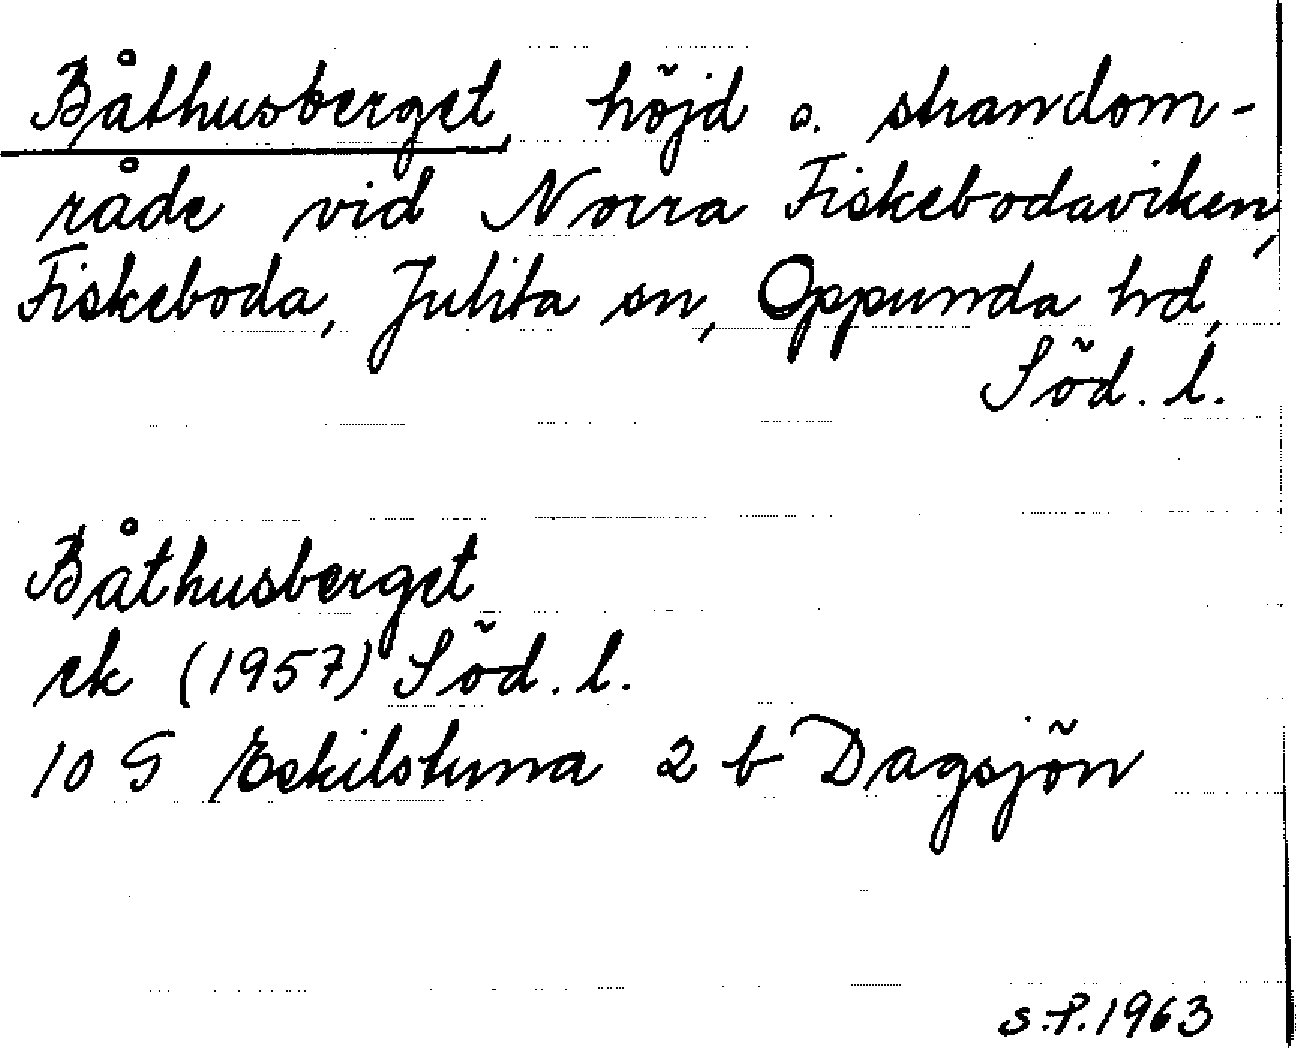 Båthusberget, höjd o. strandom-
råde vid Norra Fiskebodaviken,
Fiskeboda, Julita sn, Oppunda hd,
Söd. l.
Båthusberget
ek (1957) Söd. l.
10 G Eskilstuna 2 b Dagsjön
S.P. 1963